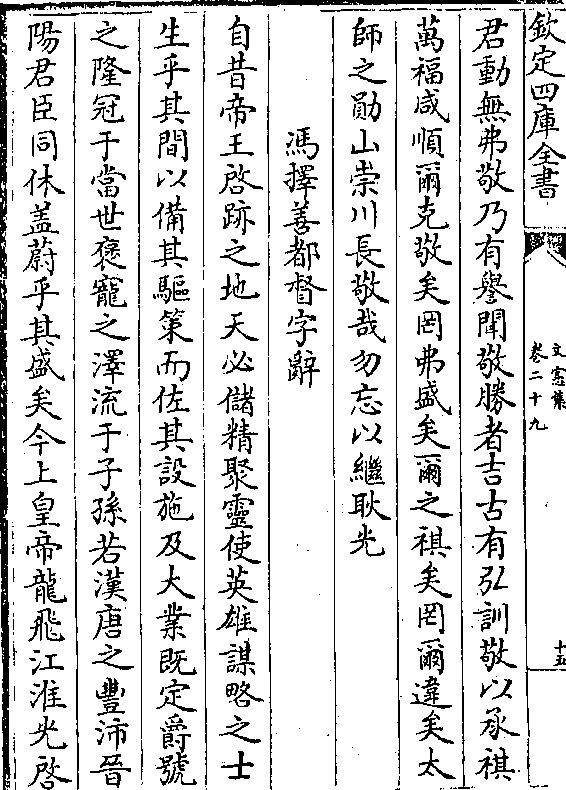 欽定四庫全書
文憲集
卷二十九
十五
君動無弗敬乃有譽聞敬勝者吉古有弘訓敬以承祺
萬福咸順爾克敬矣罔弗盛矣爾之祺矣罔爾違矣太
師之勛山崇川長敬哉勿忘以繼耿光
馮擇善都督字辭
自昔帝王啓跡之地天必儲精聚靈使英雄謀略之士
生乎其間以備其驅策而佐其設施及大業既定爵號
之隆冠于當世褒寵之澤流于子孫若漢唐之豐沛晉
陽君臣同休盖蔚乎其盛矣今上皇帝龍飛江淮光啓